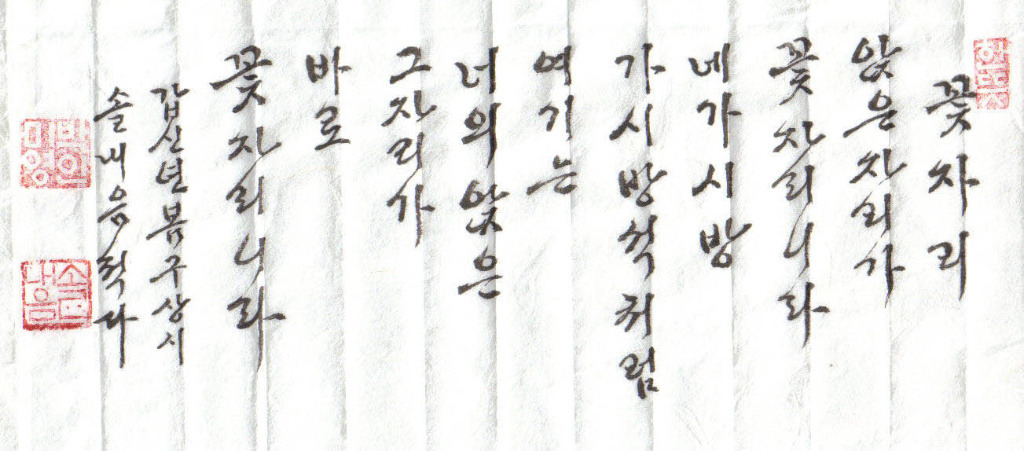 꽃자리
앉은자리가
꽃자리니라
네가시방
가시방석처럼
여기는
너의앉은
그자리가
바로
꽃자리니라
갑신년봄구상시
솔내음적다